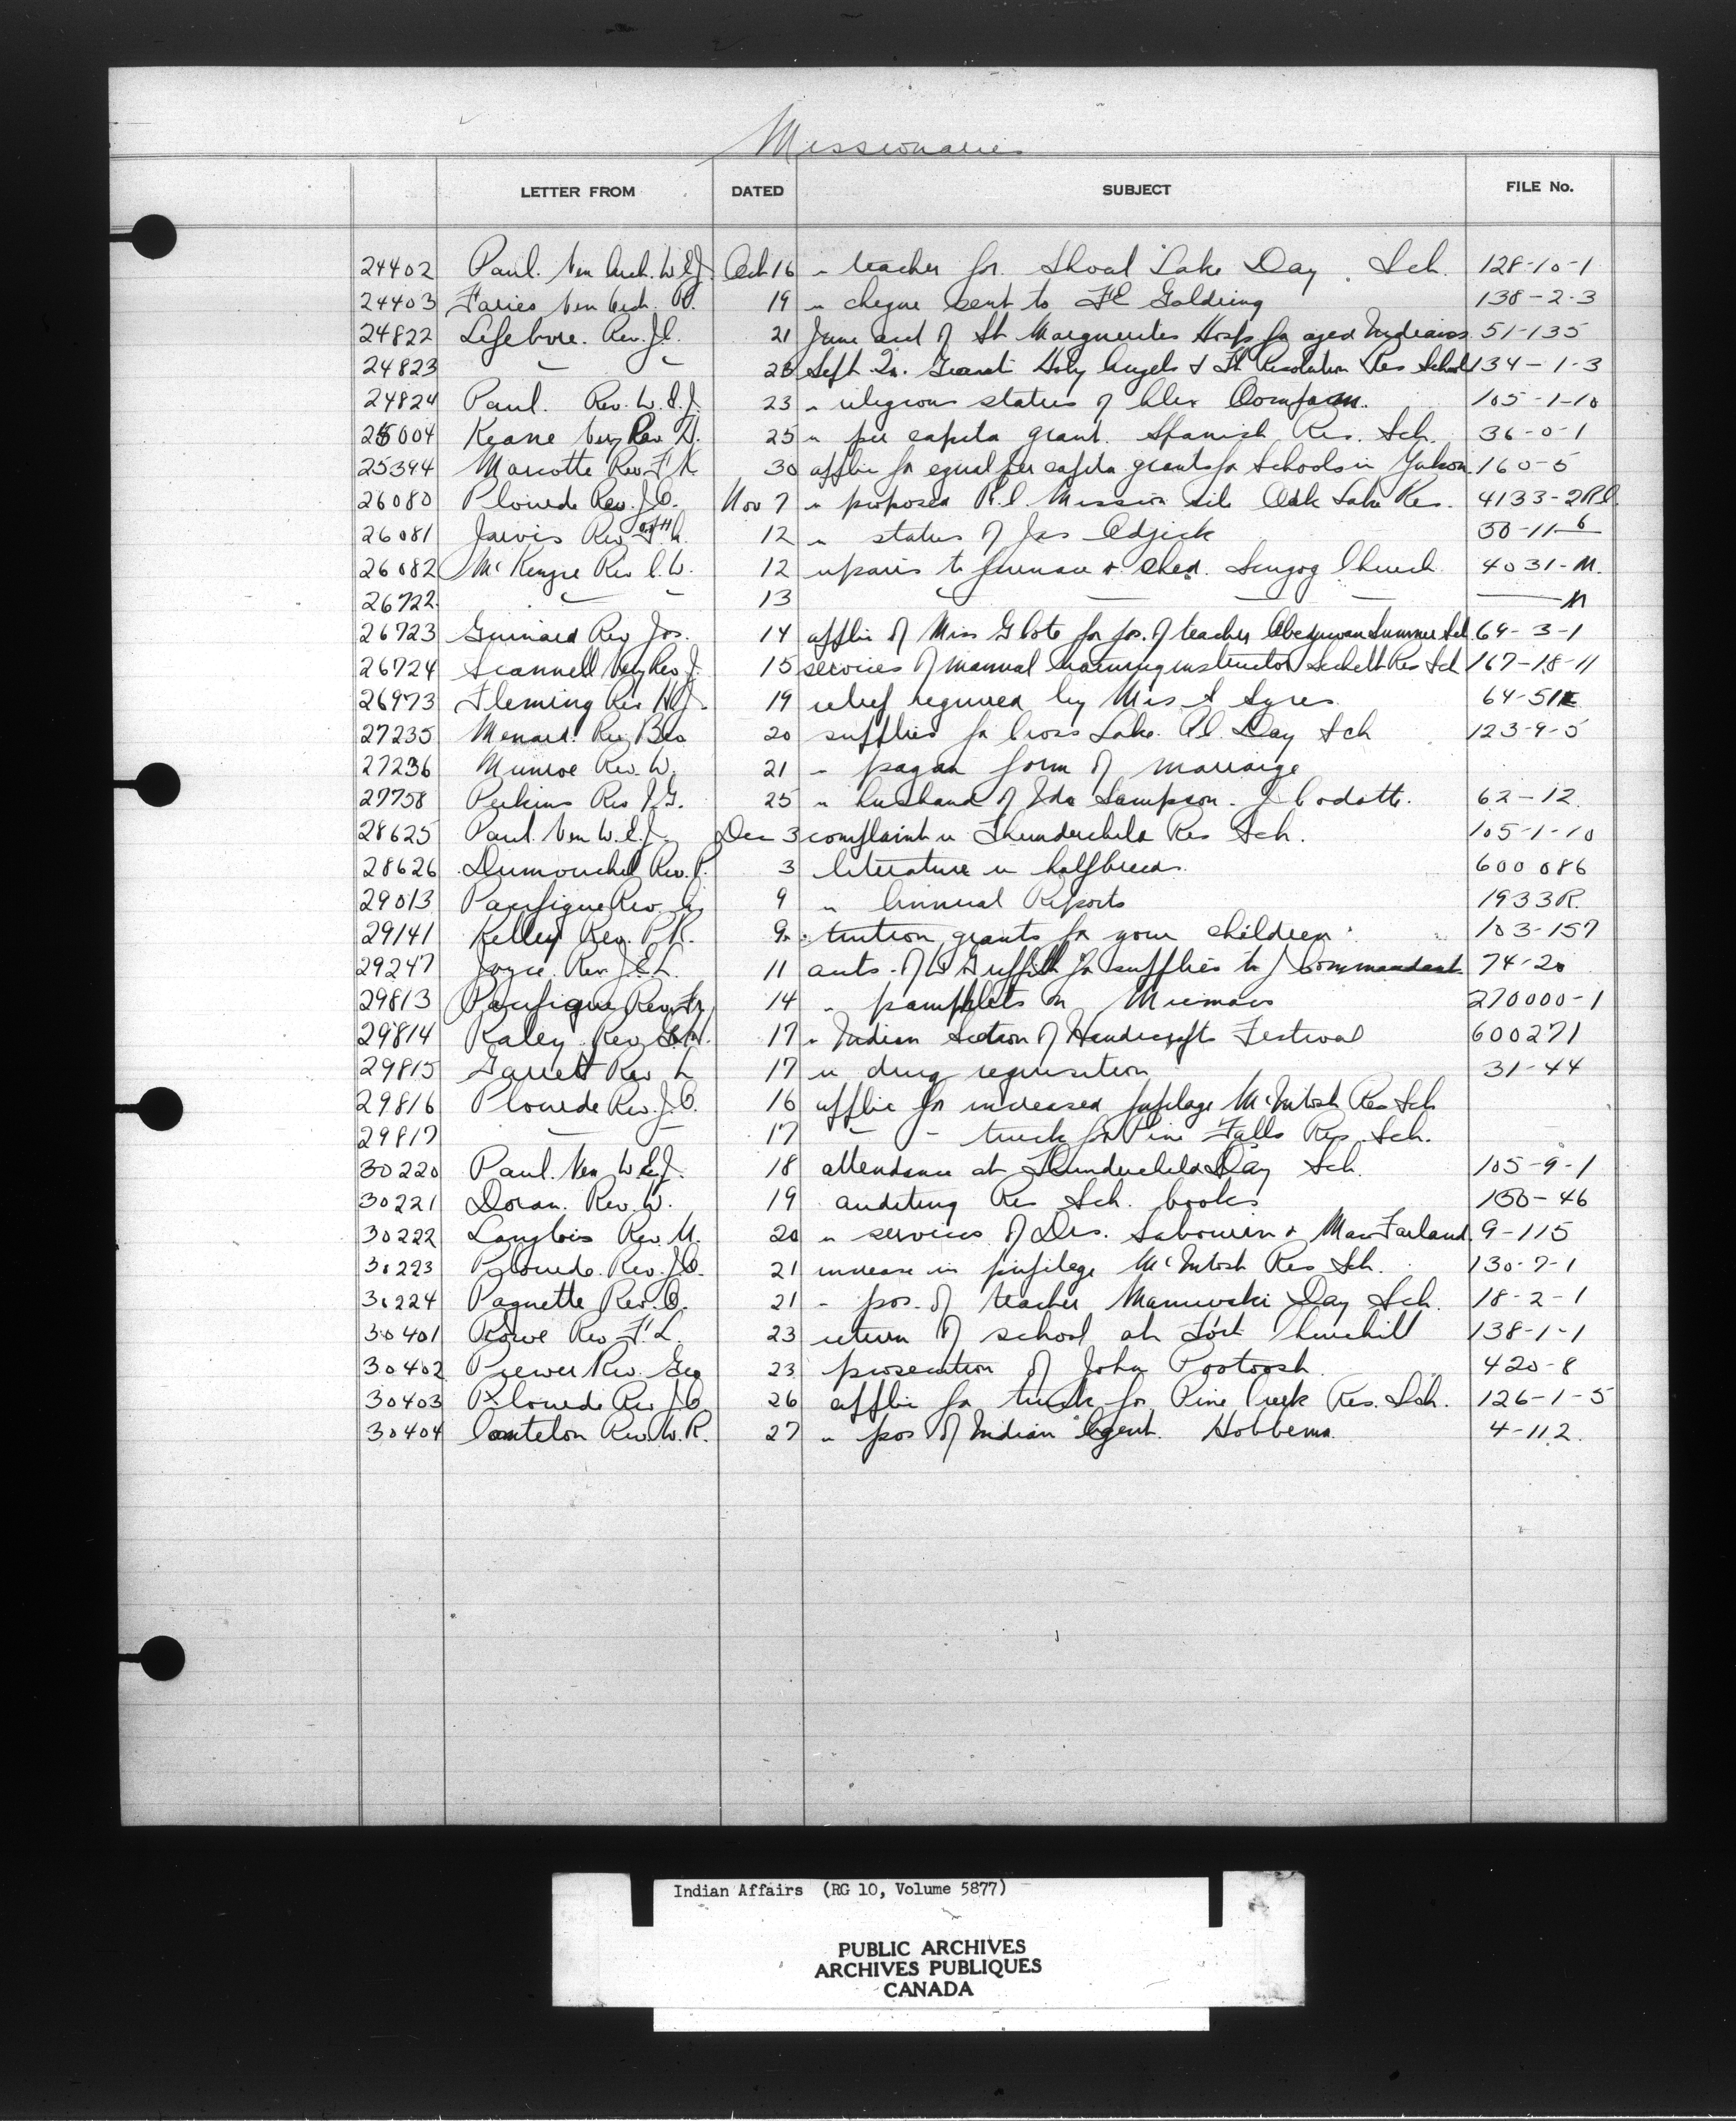 Missionaries
LETTER FROM DATED SUBJECT FILE No.
24402 Paul. Ven Arch. W.E.J. Oct 16 re teacher for Shoal Lake Day Sch. 128-10-1
24403 Faries Ven Arch. R. 19 re cheque sent to F E Goldring 138-2-3
24822 Lefebvre. Rev. J.C. 21 June acct of St Marguerites Hosp for aged Indians 51-135
24823 " " 23 Sept Qr. Grant Holy Angels & Ft Resolution Res School 134-1-3
24824 Paul. Rev. W.E.J. 23 re religious status of Alex 105-1-10
25004 Keane Very Rev. D. 25 re per capita grant. Spanish Res. Sch. 36-0-1
25394 Marcotte Rev. F.X. 30 applic for equal per capita grants for schools in Yukon 160-5
26080 Plourde Rev. J.O. Nov 7 re proposed R.C. Mission site Oak Lake Res. 4133-2RC
26081 Jarvis Rev 12 re status of Jas Adjick 30-11-6
26082 McKenzie Rev C.W. 12 repairs to furnace & shed. Scugog Church 4031-M.
26722 " " 13 " " " " M
26723 Guinard Rev Jos. 14 applic of Miss G Cote for pos. of teacher Obedjiwan Summer Sch. 64-3-1
26724 Scannell Very Rev J. 15 services of manual training instructor Sechelt Res Sch 167-18-11
26973 Fleming Rev H.J. 19 relief required by Mrs S Ayres 64-511E
27235 Menard. Rev Bro 20 supplies for Cross Lake R.C. Day Sch 123-9-5
27236 Munroe Rev. W. 21 re pagan form of marriage
27758 Perkins Rev J.G. 25 re husband of Ida Sampson. J Codotte. 62-12
28625 Paul Ven W.E.J. Dec 3 complaint re Thunderchild Res Sch. 105-1-10
28626 Dumouchel Rev. P. 3 literature re halfbreeds. 600086
29013 Pacifique Rev. 9 re Annual Reports 1933R.
29141 Kelley Rev. P.R. 9 tuition grants for your children 103-157
29247 Joyce Rev. J.E.L. 11 accts. of W Griffith for supplies to J Commandant 74-20
29813 Pacifique Rev. Fr. 14 re pamphlets on Micmacs 270000-1
29814 Raley Rev. G.H. 17 re Indian section of Handicrafts Festival 600271
29815 Garrett Rev L 17 re drug requisition 31-44
29816 Plourde Rev. J.O. 16 applic for increased pupilage McIntosh Res Sch
29817 " " 17 " " truck for Pine Falls Res. Sch.
30220 Paul. Ven W.E.J. 18 attendance at Thunderchild Day Sch. 105-9-1
30221 Doran. Rev. W. 19 auditing Res Sch. books 150-46
30222 Langlois Rev. U. 20 re services of Drs. Sabourin & MacFarland 9-115
30223 Plourde. Rev. J.O. 21 increase in pupilage McIntosh Res Sch. 130-7-1
30224 Paquette Rev. O. 21 re pos. of teacher Maniwaki Day Sch. 18-2-1
30401 Rowe Rev F.L. 23 return of school at Fort Churchill 138-1-1
30402 Prewer Rev. Geo 23 prosecution of John Pootoosh 420-8
30403 Plourde Rev J.O. 26 applic for truck for Pine Creek Res. Sch. 126-1-5
30404 Cantelon Rev. W.R. 27 re pos of Indian Agent. Hobbema. 4-112
Indian Affairs (RG 10, Volume 5877)
PUBLIC ARCHIVES
ARCHIVES PUBLIQUES
CANADA